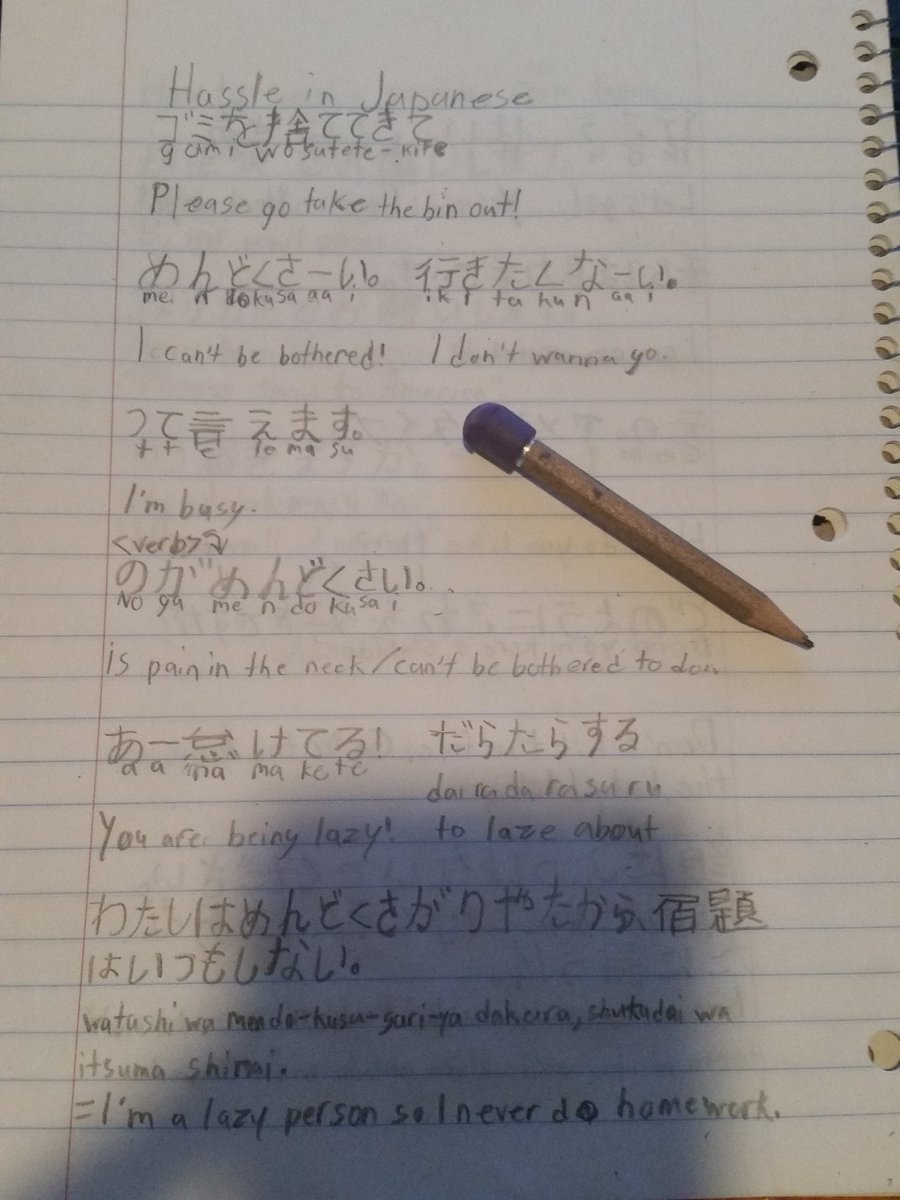 Hassle in Japanese
ゴミを捨ててきて
gomi wo sutete-kite
Please go take the bin out!
めんどくさーい。 行きたくなーい。
me n dokusa aa i i k i ta hu n aa i
I can't be bothered! I don't wanna go.
って言えます。
t t e ie ma su
I'm busy.
<verb>る
のがめんどくさい。
No ga me n do ku sa i
is pain in the neck/can't be bothered to don
あー怠けてる! だらたらする
a a na ma ke te
dai ra da ra su ru
You are being lazy! to laze about
わたしはめんどくさがりやたから、宿題
はいつもしない。
watashi wa mendo-kusu-gari-ya dakara, shukudai wa
itsuma shinai.
=I'm a lazy person so I never do homework.